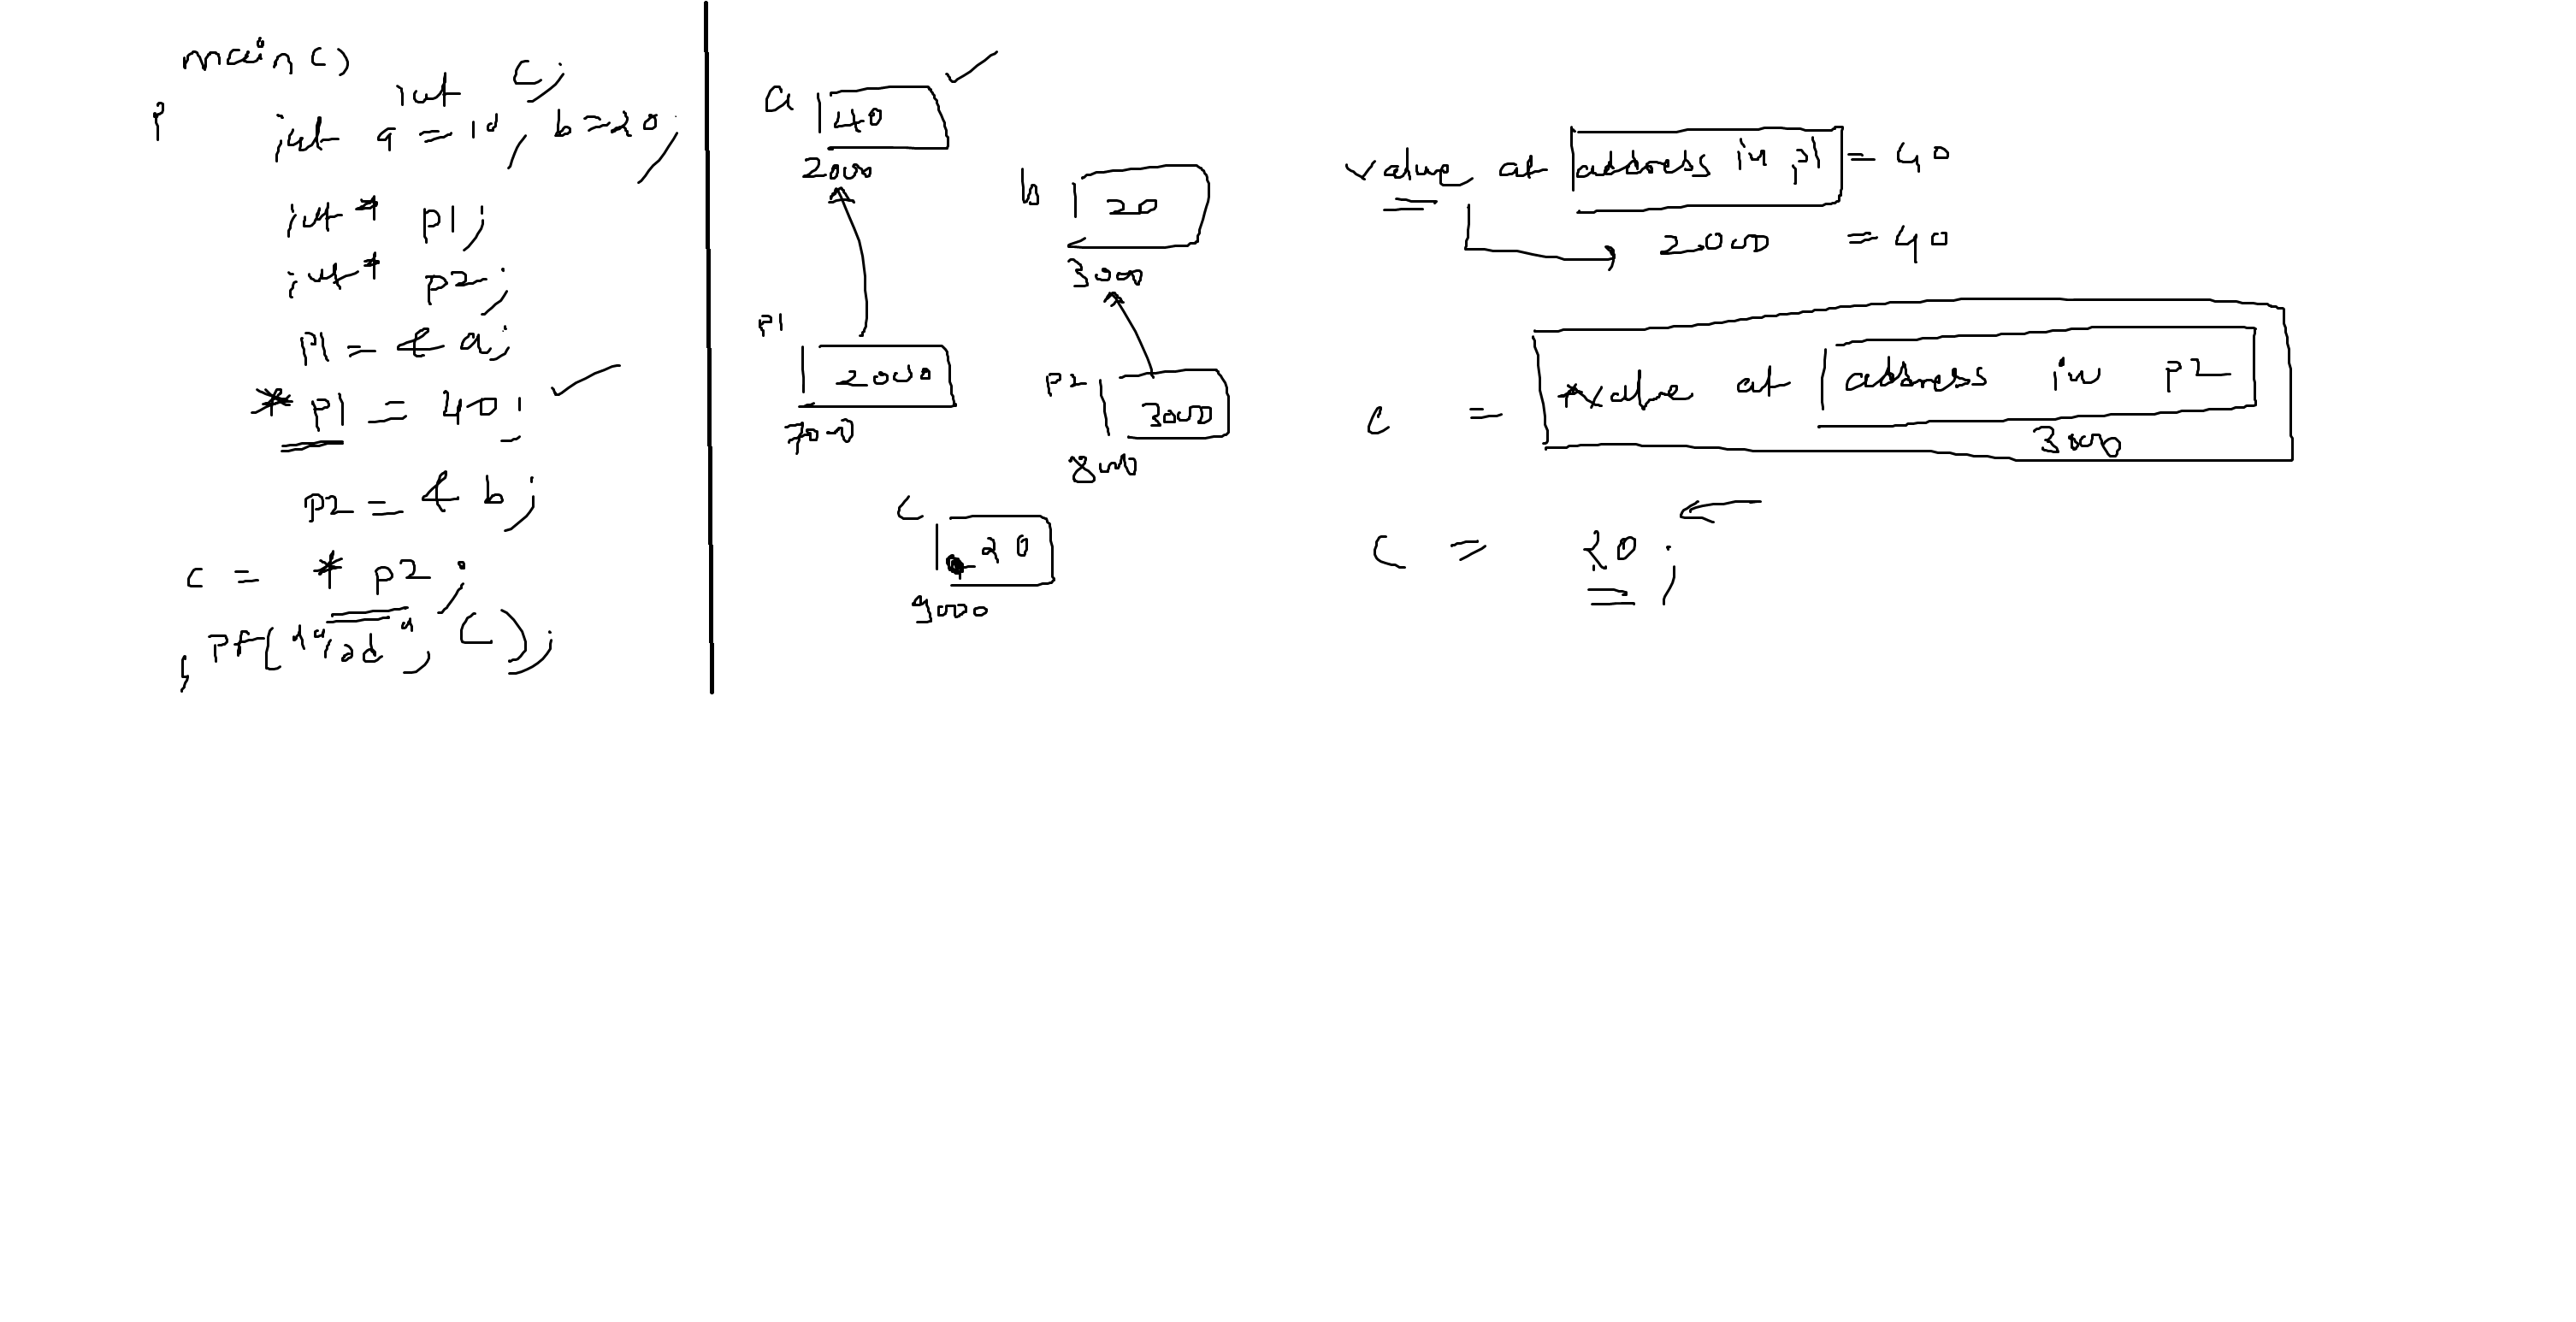 main()
int c;
{ int a = 10, b = 20;
int* p1;
int* p2;
p1 = & a;
* p1 = 40;
p2 = & b;
c = * p2;
} pf("%d", c);
a 40
2000
b 20
3000
p1
2000
7000
p2
3000
8000
c
20
9000
value at address in p1 = 40
2000 = 40
c = value at address in p2
3000
c = 20;